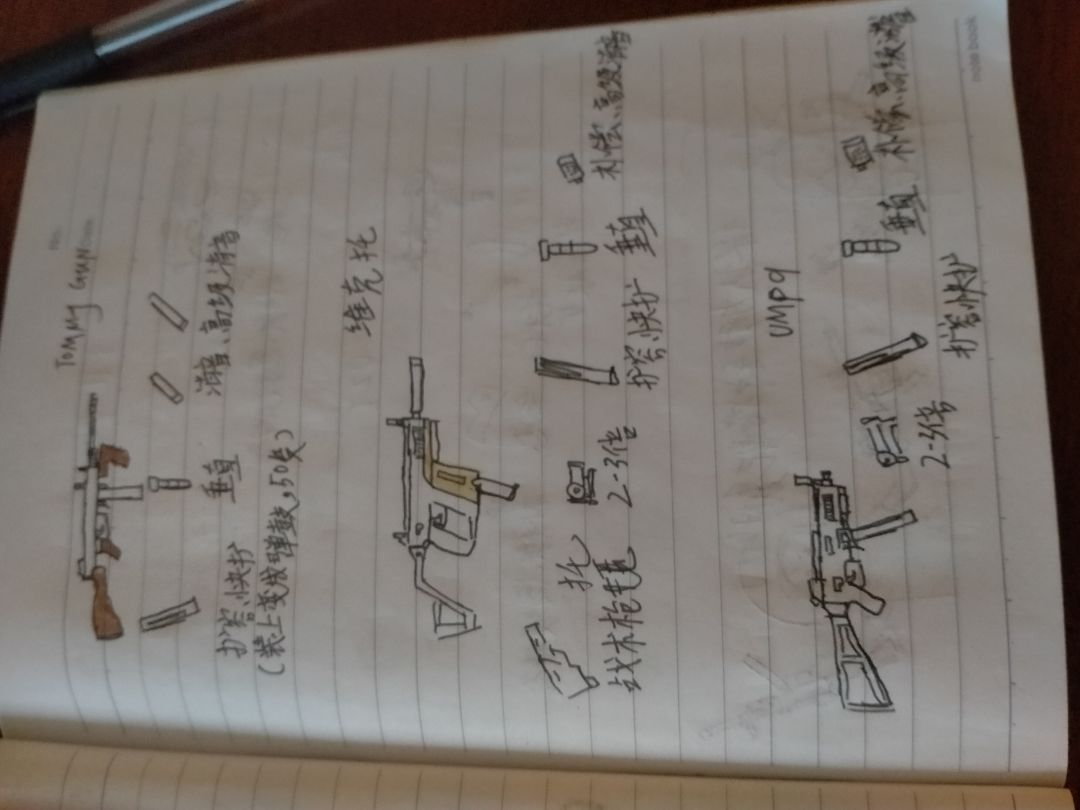 TOMMY GUN
扩容、快扩 垂直 消音、高级消音
(装上变成弹鼓,50发)
维克托
托
战术枪 2-3倍 扩容、快扩 垂直 补偿、高级消音
UMP9
2-3倍 扩容、快扩 垂直 补偿、高级消音
notebook